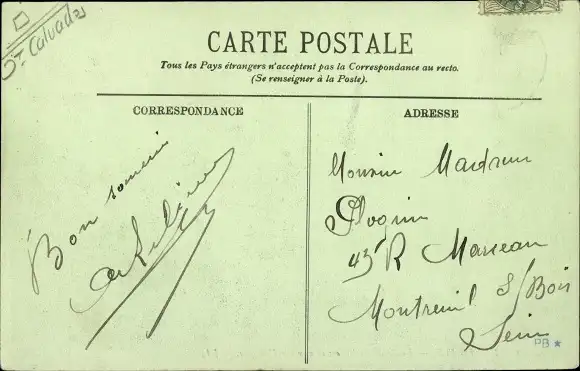 Dt Calvados
CARTE POSTALE
Tous les Pays étrangers n'acceptent pas la Correspondance au recto.
(Se renseigner à la Poste).
CORRESPONDANCE
Bon
ADRESSE
45 R Marceau
Montreuil s/Bois
Seine
PB